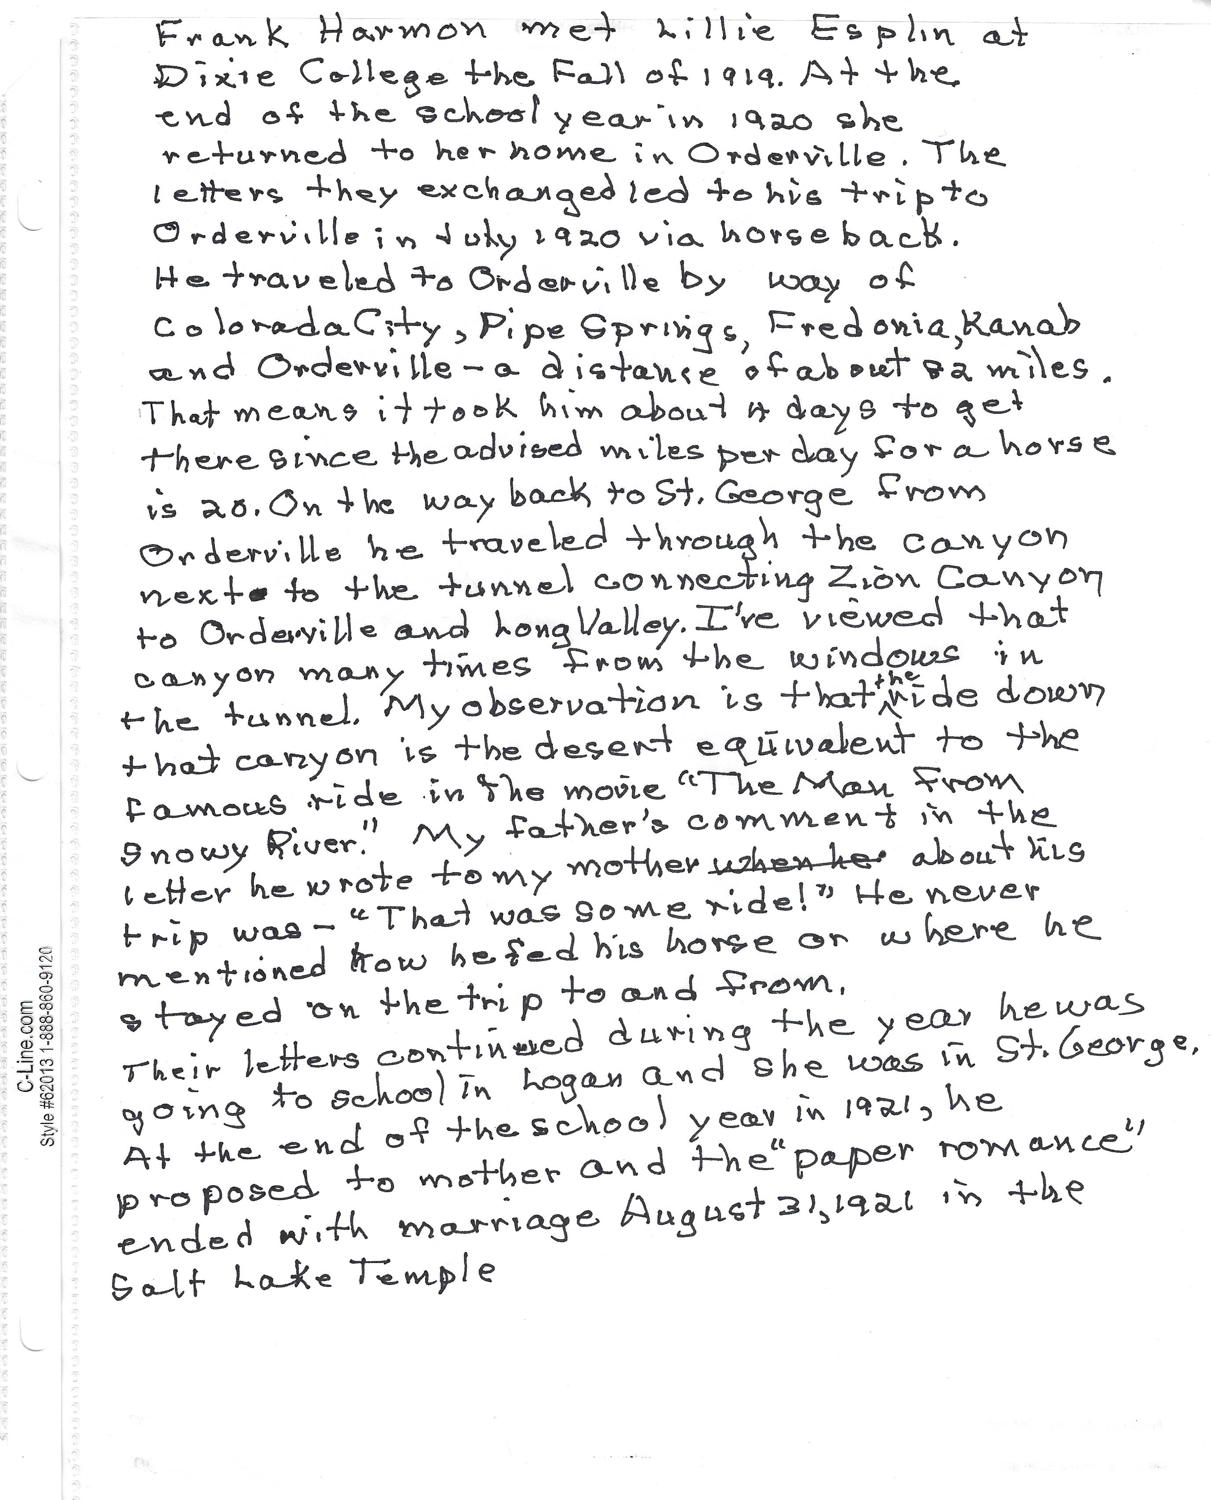 Frank Harmon met Lillie Esplin at
Dixie College the Fall of 1919. At the
end of the school year in 1920 she
returned to her home in Orderville. The
letters they exchanged led to his trip to
Orderville in July 1920 via horseback.
He traveled to Orderville by way of
Colorada City, Pipe Springs, Fredonia, Kanab
and Orderville - a distance of about 82 miles.
That means it took him about 4 days to get
there since the advised miles per day for a horse
is 20. On the way back to St. George from
Orderville he traveled through the canyon
next to the tunnel connecting Zion Canyon
to Orderville and Long Valley. I've viewed that
canyon many times from the windows in
the tunnel. My observation is that the ride down
that canyon is the desert equivalent to the
famous ride in the movie "The Man From
Snowy River." My father's comment in the
letter he wrote to my mother when he about his
trip was - "That was some ride!" He never
mentioned how he fed his horse or where he
stayed on the trip to and from.
Their letters continued during the year he was
going to school in Logan and she was in St. George.
At the end of the school year in 1921, he
proposed to mother and the "paper romance"
ended with marriage August 31, 1921 in the
Salt Lake Temple
C-Line.com
Style #62013 1-888-860-9120